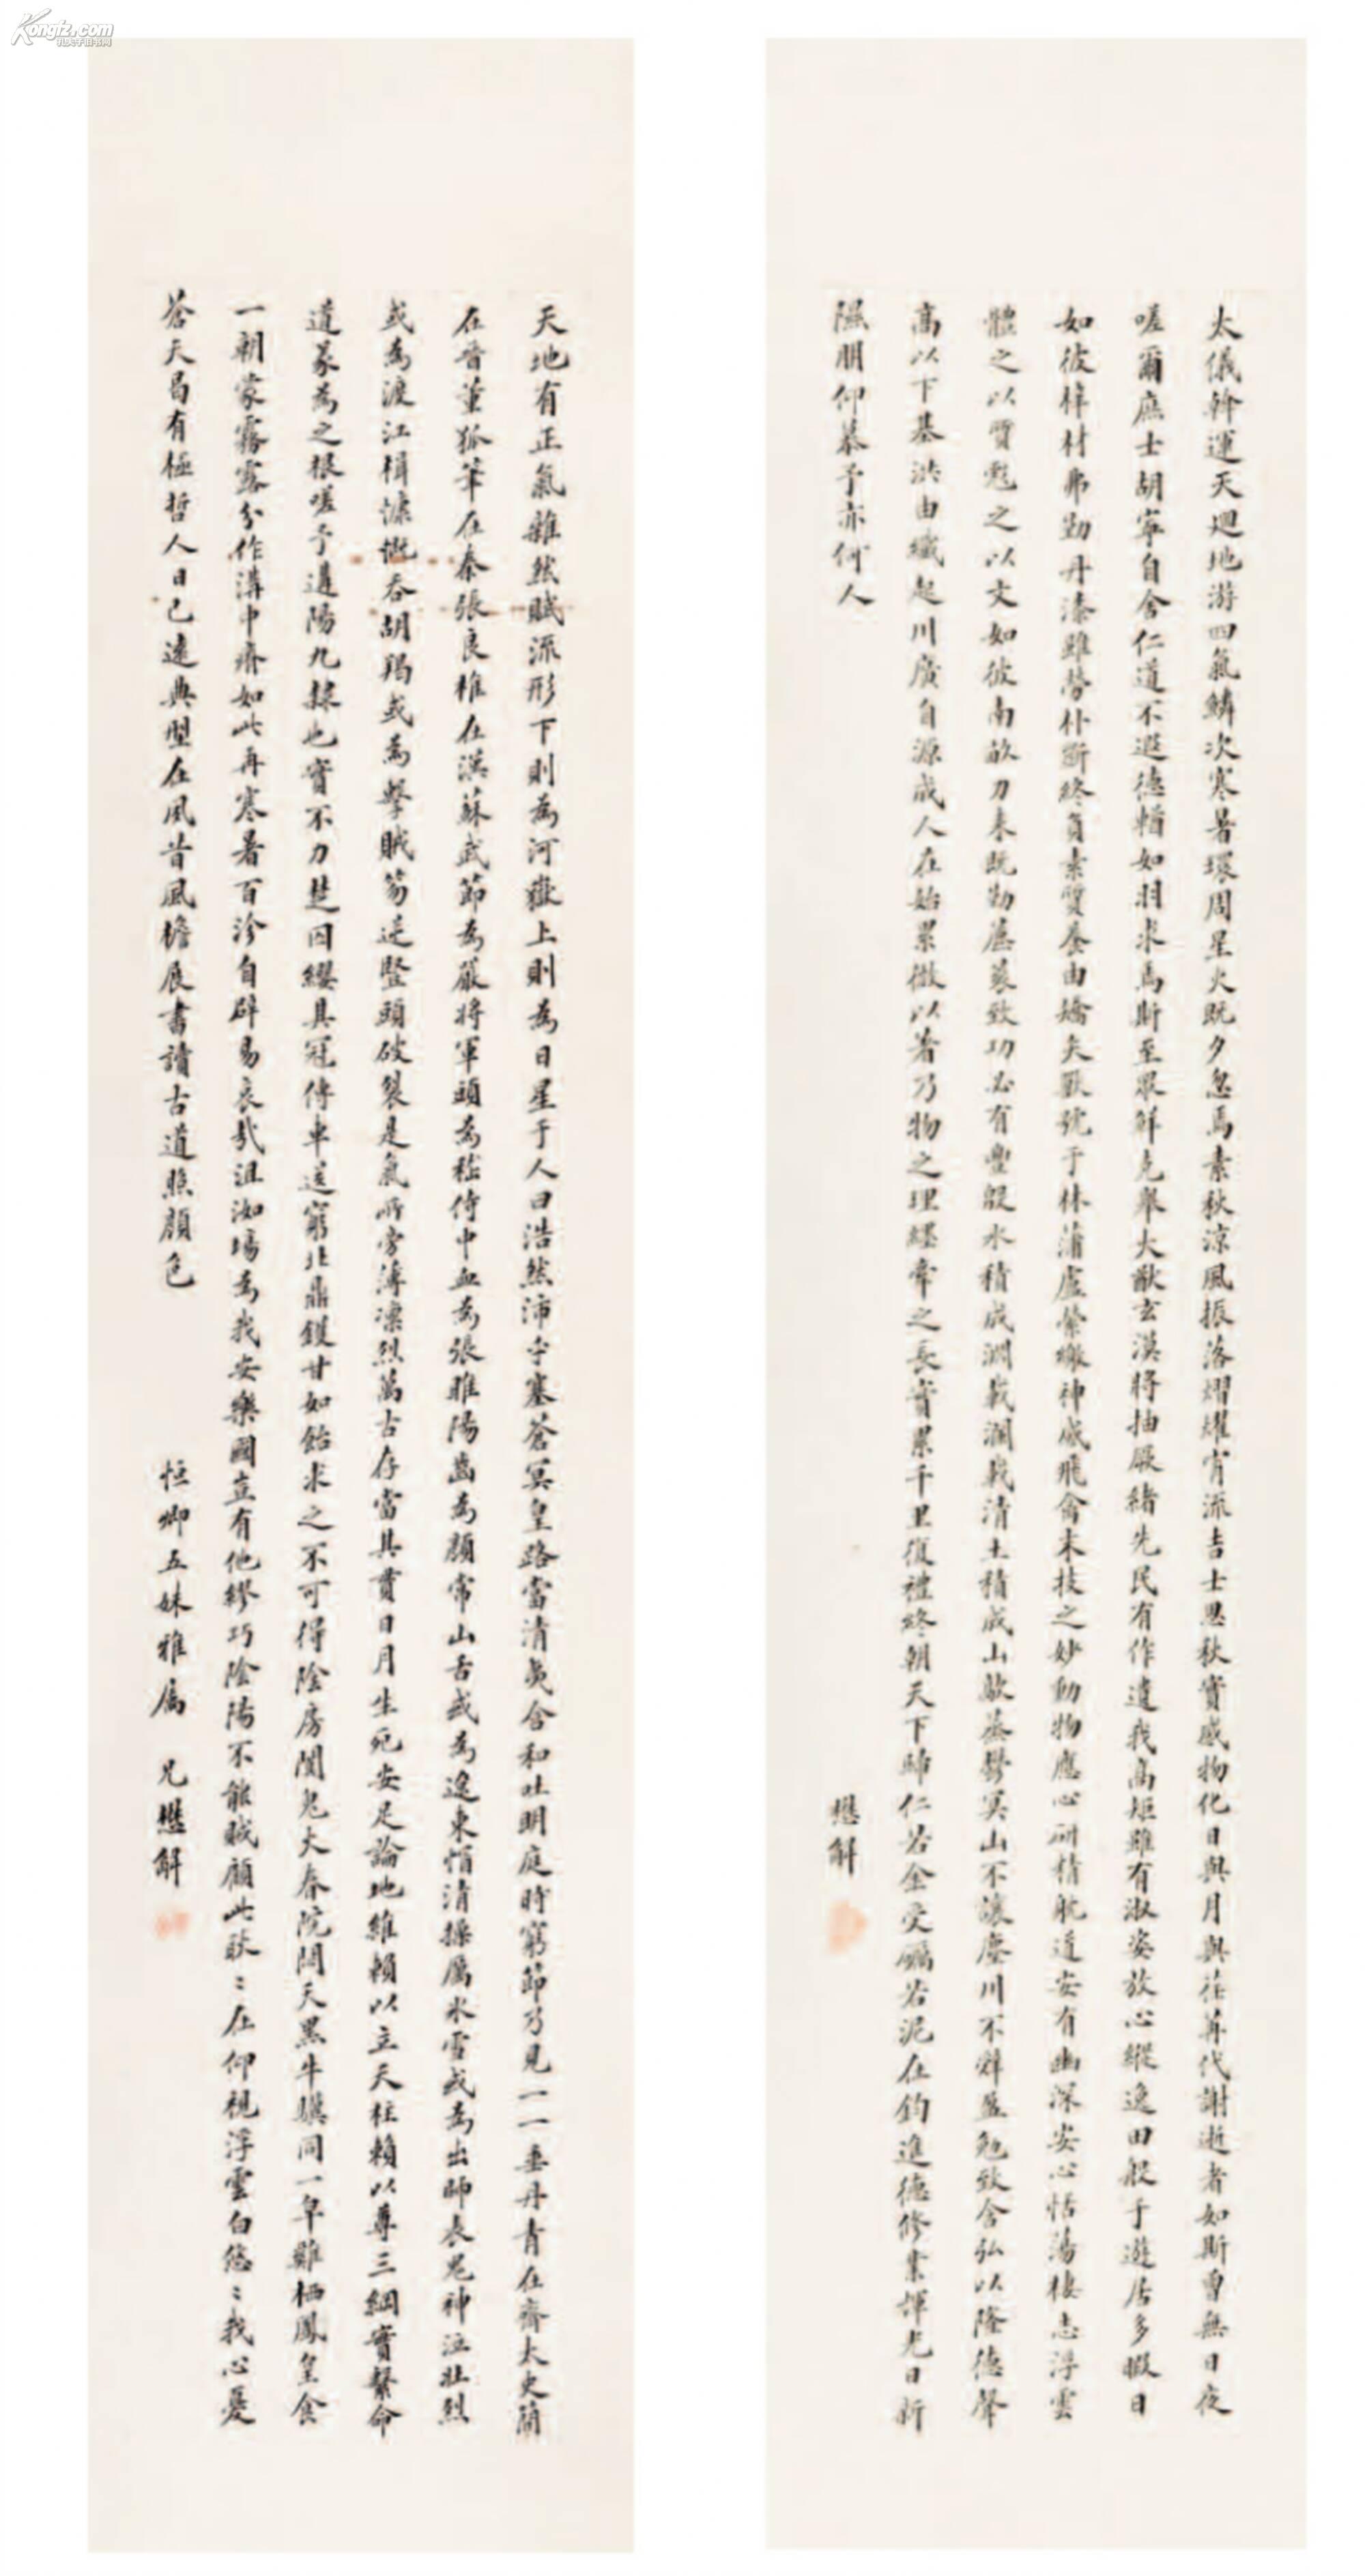 Kongfz.com
孔夫子旧书网
太儀斡運天迴地游四氣鱗次寒暑環周星火既夕忽焉素秋涼風振落熠耀宵流吉士思秋寔感物化日與月與荏苒代謝逝者如斯曾無日夜
嗟爾庶士胡寧自舍仁道不遐德輶如羽求焉斯至眾鮮克舉大猷玄漠將抽厥緒先民有作遺我高矩雖有淑姿放心縱逸田般于遊居多暇日
如彼梓材弗勤丹漆雖勞朴斲終負素質養由矯矢獸號于林蒲盧縈繳神感飛禽末技之妙動物應心研精躭道安有幽深安心恬蕩棲志浮雲
體之以質彪之以文如彼南畝力耒既勤藨蓘致功必有豐殷水積成淵載瀾載清土積成山歊蒸鬱冥山不讓塵川不辭盈勉致含弘以隆德聲
高以下基洪由纖起川廣自源成人在始累微以著乃物之理纆牽之長實累千里復禮終朝天下歸仁若金受礪若泥在鈞進德修業暉光日新
隰朋仰慕予亦何人
懋解
天地有正氣雜然賦流形下則為河嶽上則為日星于人曰浩然沛乎塞蒼冥皇路當清夷含和吐明庭時窮節乃見一一垂丹青在齊太史簡
在晉董狐筆在秦張良椎在漢蘇武節為嚴將軍頭為嵇侍中血為張睢陽齒為顏常山舌或為遼東帽清操厲冰雪或為出師表鬼神泣壯烈
或為渡江楫慷慨吞胡羯或為擊賊笏逆豎頭破裂是氣所旁薄凜烈萬古存當其貫日月生死安足論地維賴以立天柱賴以尊三綱實繫命
道義為之根嗟予遘陽九隸也實不力楚囚纓其冠傳車送窮北鼎鑊甘如飴求之不可得陰房闃鬼火春院閟天黑牛驥同一皁雞栖鳳皇食
一朝蒙霧露分作溝中瘠如此再寒暑百沴自辟易哀哉沮洳場為我安樂國豈有他繆巧陰陽不能賊顧此耿〻在仰視浮雲白悠〻我心憂
蒼天曷有極哲人日已遠典型在夙昔風檐展書讀古道照顏色
恒卿五妹雅屬 兄懋解